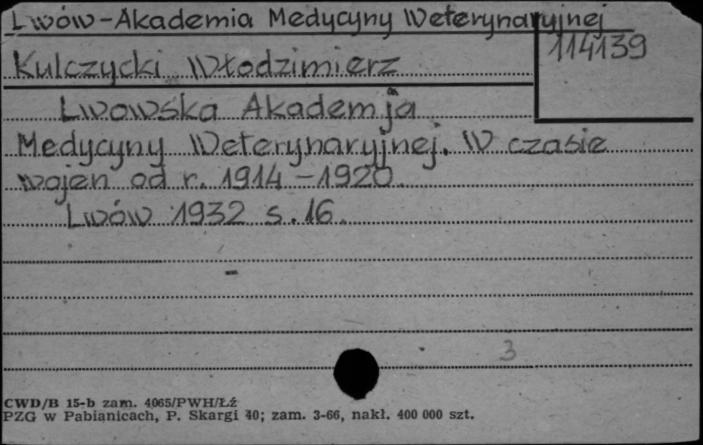 Lwów-Akademia Medycyny Weterynaryjnej
114139
Kulczycki Włodzimierz
Lwowska Akademja
Medycyny Weterynaryjnej. W czasie
wojen od r. 1914-1920.
Lwów 1932 s. 16.
3
CWD/B 15-b zam. 4065/PWH/Łź
PZG w Pabianicach, P. Skargi 40; zam. 3-66, nakł. 400 000 szt.